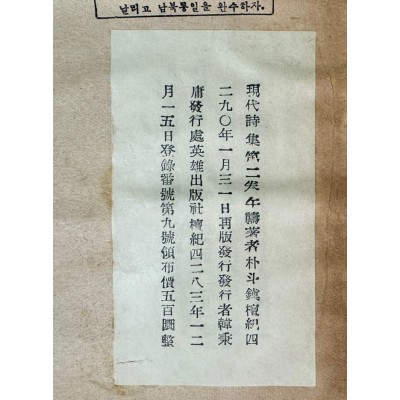 날리고 남북통일을 완수하자.
現代詩集第二卷午禱著者朴斗鎭檀紀四
二九〇年一月三一日再版發行發行者韓乘
庸發行處英雄出版社檀紀四二八三年一二
月一五日登錄番號第九號頒布價五百圜整